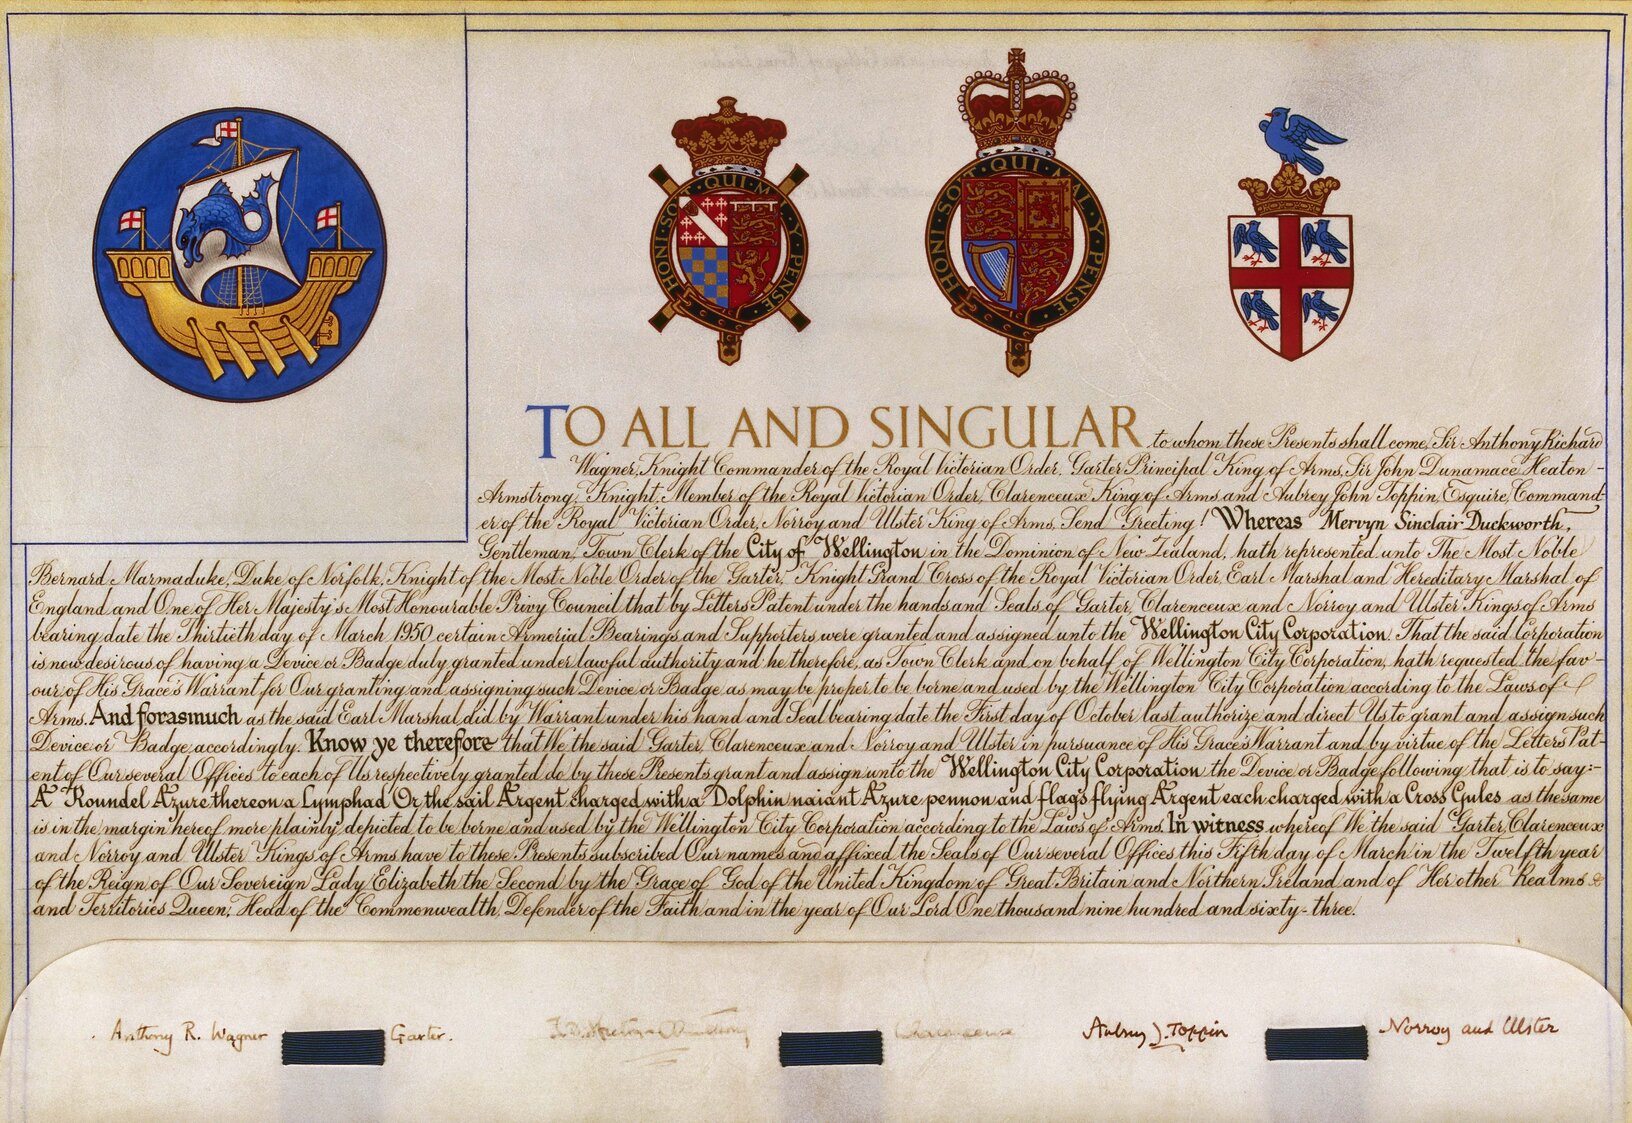 HONI·SOIT·QUI·MAL·Y·PENSE
HONI·SOIT·QUI·MAL·Y·PENSE
TO ALL AND SINGULAR to whom these Presents shall come, Sir Anthony Richard
Wagner, Knight Commander of the Royal Victorian Order, Garter Principal King of Arms, Sir John Dunamace Heaton-
Armstrong, Knight, Member of the Royal Victorian Order, Clarenceux King of Arms and Aubrey John Toppin, Esquire, Command-
er of the Royal Victorian Order, Norroy and Ulster King of Arms, Send Greeting! Whereas Mervyn Sinclair Duckworth,
Gentleman, Town Clerk of the City of Wellington in the Dominion of New Zealand, hath represented unto The Most Noble
Bernard Marmaduke, Duke of Norfolk, Knight of the Most Noble Order of the Garter, Knight Grand Cross of the Royal Victorian Order, Earl Marshal and Hereditary Marshal of
England and One of Her Majesty's Most Honourable Privy Council that by Letters Patent under the hands and Seals of Garter, Clarenceux and Norroy and Ulster Kings of Arms
bearing date the Thirtieth day of March 1950 certain Armorial Bearings and Supporters were granted and assigned unto the Wellington City Corporation. That the said Corporation
is now desirous of having a Device or Badge duly granted under lawful authority and he therefore, as Town Clerk and on behalf of Wellington City Corporation, hath requested the fav-
our of His Grace's Warrant for Our granting and assigning such Device or Badge as may be proper to be borne and used by the Wellington City Corporation according to the Laws of
Arms. And forasmuch as the said Earl Marshal did by Warrant under his hand and Seal bearing date the First day of October last authorize and direct Us to grant and assign such
Device or Badge accordingly. Know ye therefore that We the said Garter, Clarenceux and Norroy and Ulster in pursuance of His Grace's Warrant and by virtue of the Letters Pat-
ent of Our several Offices to each of Us respectively granted do by these Presents grant and assign unto the Wellington City Corporation the Device or Badge following that is to say:-
A Roundel Azure thereon a Lymphad Or the sail Argent charged with a Dolphin naiant Azure pennon and flags flying Argent each charged with a Cross Gules as the same
is in the margin hereof more plainly depicted to be borne and used by the Wellington City Corporation according to the Laws of Arms. In witness whereof We the said Garter, Clarenceux
and Norroy and Ulster Kings of Arms have to these Presents subscribed Our names and affixed the Seals of Our several Offices this Fifth day of March in the Twelfth year
of the Reign of Our Sovereign Lady Elizabeth the Second by the Grace of God of the United Kingdom of Great Britain and Northern Ireland and of Her other Realms &
and Territories Queen, Head of the Commonwealth, Defender of the Faith and in the year of Our Lord One thousand nine hundred and sixty-three.
Anthony R. Wagner Garter. Clarenceux Aubrey J. Toppin Norroy and Ulster